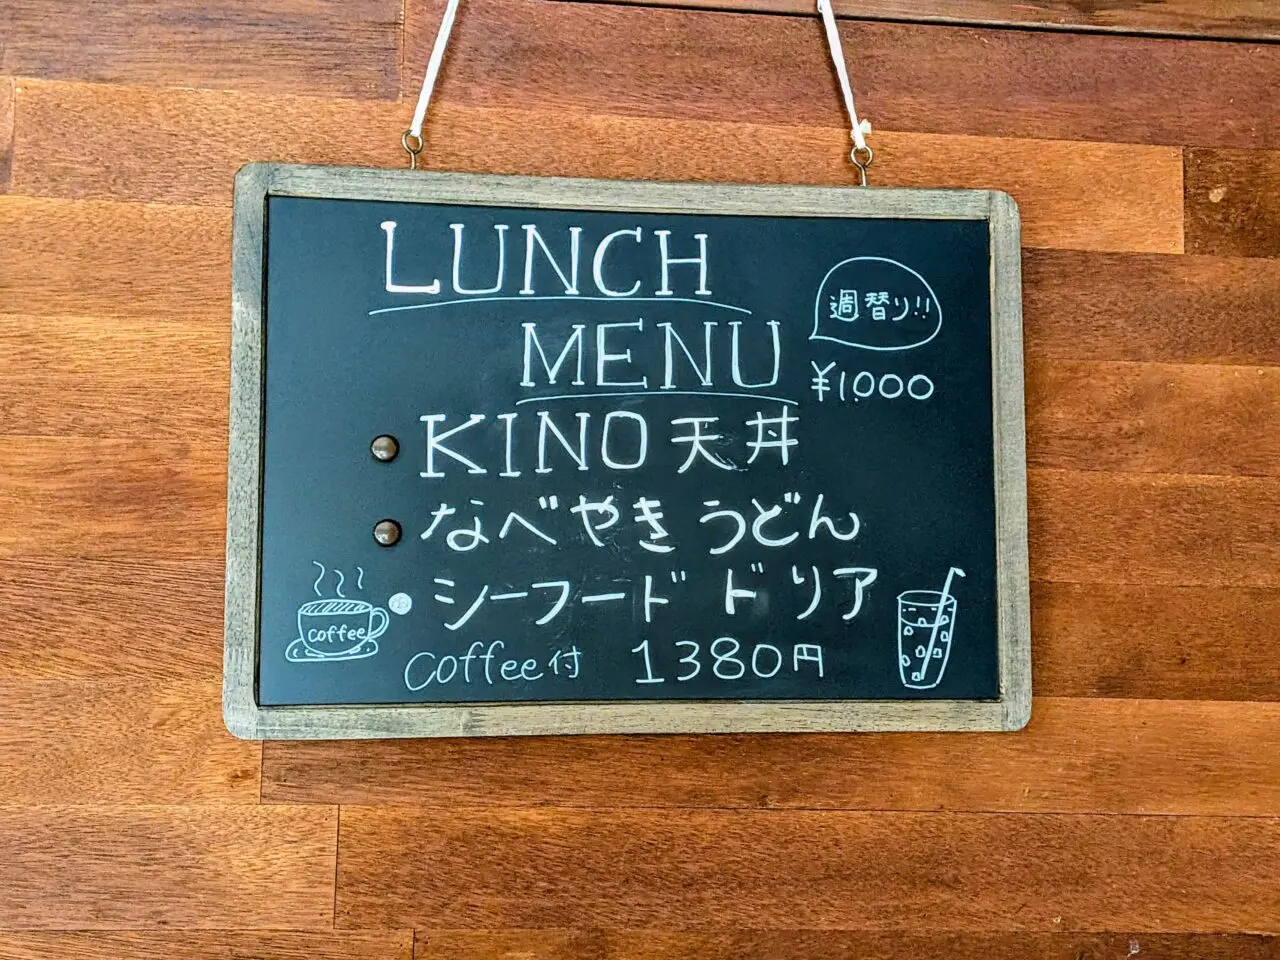 LUNCH
週替り!!
MENU
¥1.000
KINO天丼
なべやきうどん
シーフード ドリア
coffee
coffee付 1380円